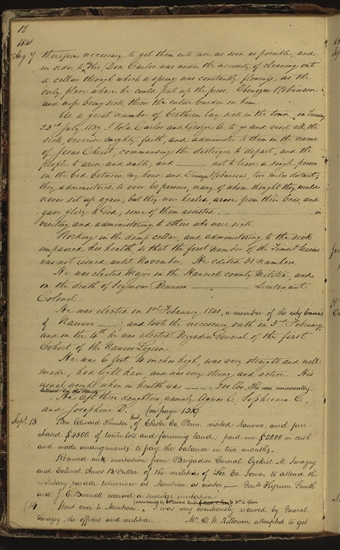 18
1841
Aug 7 therefore necessary to get them into use as soon as possible, and
in order to this, Don Carlos was under the necessity of cleaning out
a cellar through which a spring was constantly flowing, as the
only place where he could put up the press. Ebenezer Robinson
and wife being sick, threw the entire burden on him.
As a great number of brethren lay sick in the town, on Tuesday
23rd July 1839, I told Carlos and George A. to go and visit all the
sick, exercise mighty faith, and administer to them in the name
of Jesus Christ, commanding the destroyer to depart, and the
people to arise and walk, and not to leave a single person
on the bed between my house and Ebenezer Robinson's, two miles distant;
they administered to over 60 persons, many of whom thought they would
never set up again; but they were healed, arose from their beds and
gave glory to God; some of them assisted
visiting and administering to others who were sick.
Working in the damp cellar, and administering to the sick
impaired his health, so that the first number of the Times & Seasons
was not issued until November. He edited 31 numbers.
He was elected Major in the Hancock county Militia, and
on the death of Seymour Brunson Lieutenant
Colonel.
He was elected on 1st February 1841, a member of the city council
of Nauvoo and took the necessary oath on 3rd February,
and on the 4th he was elected Brigadier General of the first
Cohort of the Nauvoo Legion.
He was 6 feet 4 inches high, was very straight and well
made, had light hair, and was very strong and active. His
usual weight when in health was 200 lbs. He was universally
beloved by the Saints.
He left three daughters namely Agnes C. Sophronia C.
and Josephine D.
Sept. 13 Edward Hunter of Chester Co Penn. visited Nauvoo, and pur
chased $4500 of town lots and farming land; paid me $2000 in cash
and made arrangements to pay the balance in two months.
Received an invitation from Brigadier General Ezekiel M. Swazey
and Colonel James B. Patten of the militia of Lee Co. Iowa to attend the
military parade tomorrow at Montrose as visitor. Hyrum Smith
and J. C. Bennett received a similar invitation
14 Went over to Montrose. I was very courteously received by General
Swazey, the officers and militia. Mr. D. W. Kilbourn attempted to get